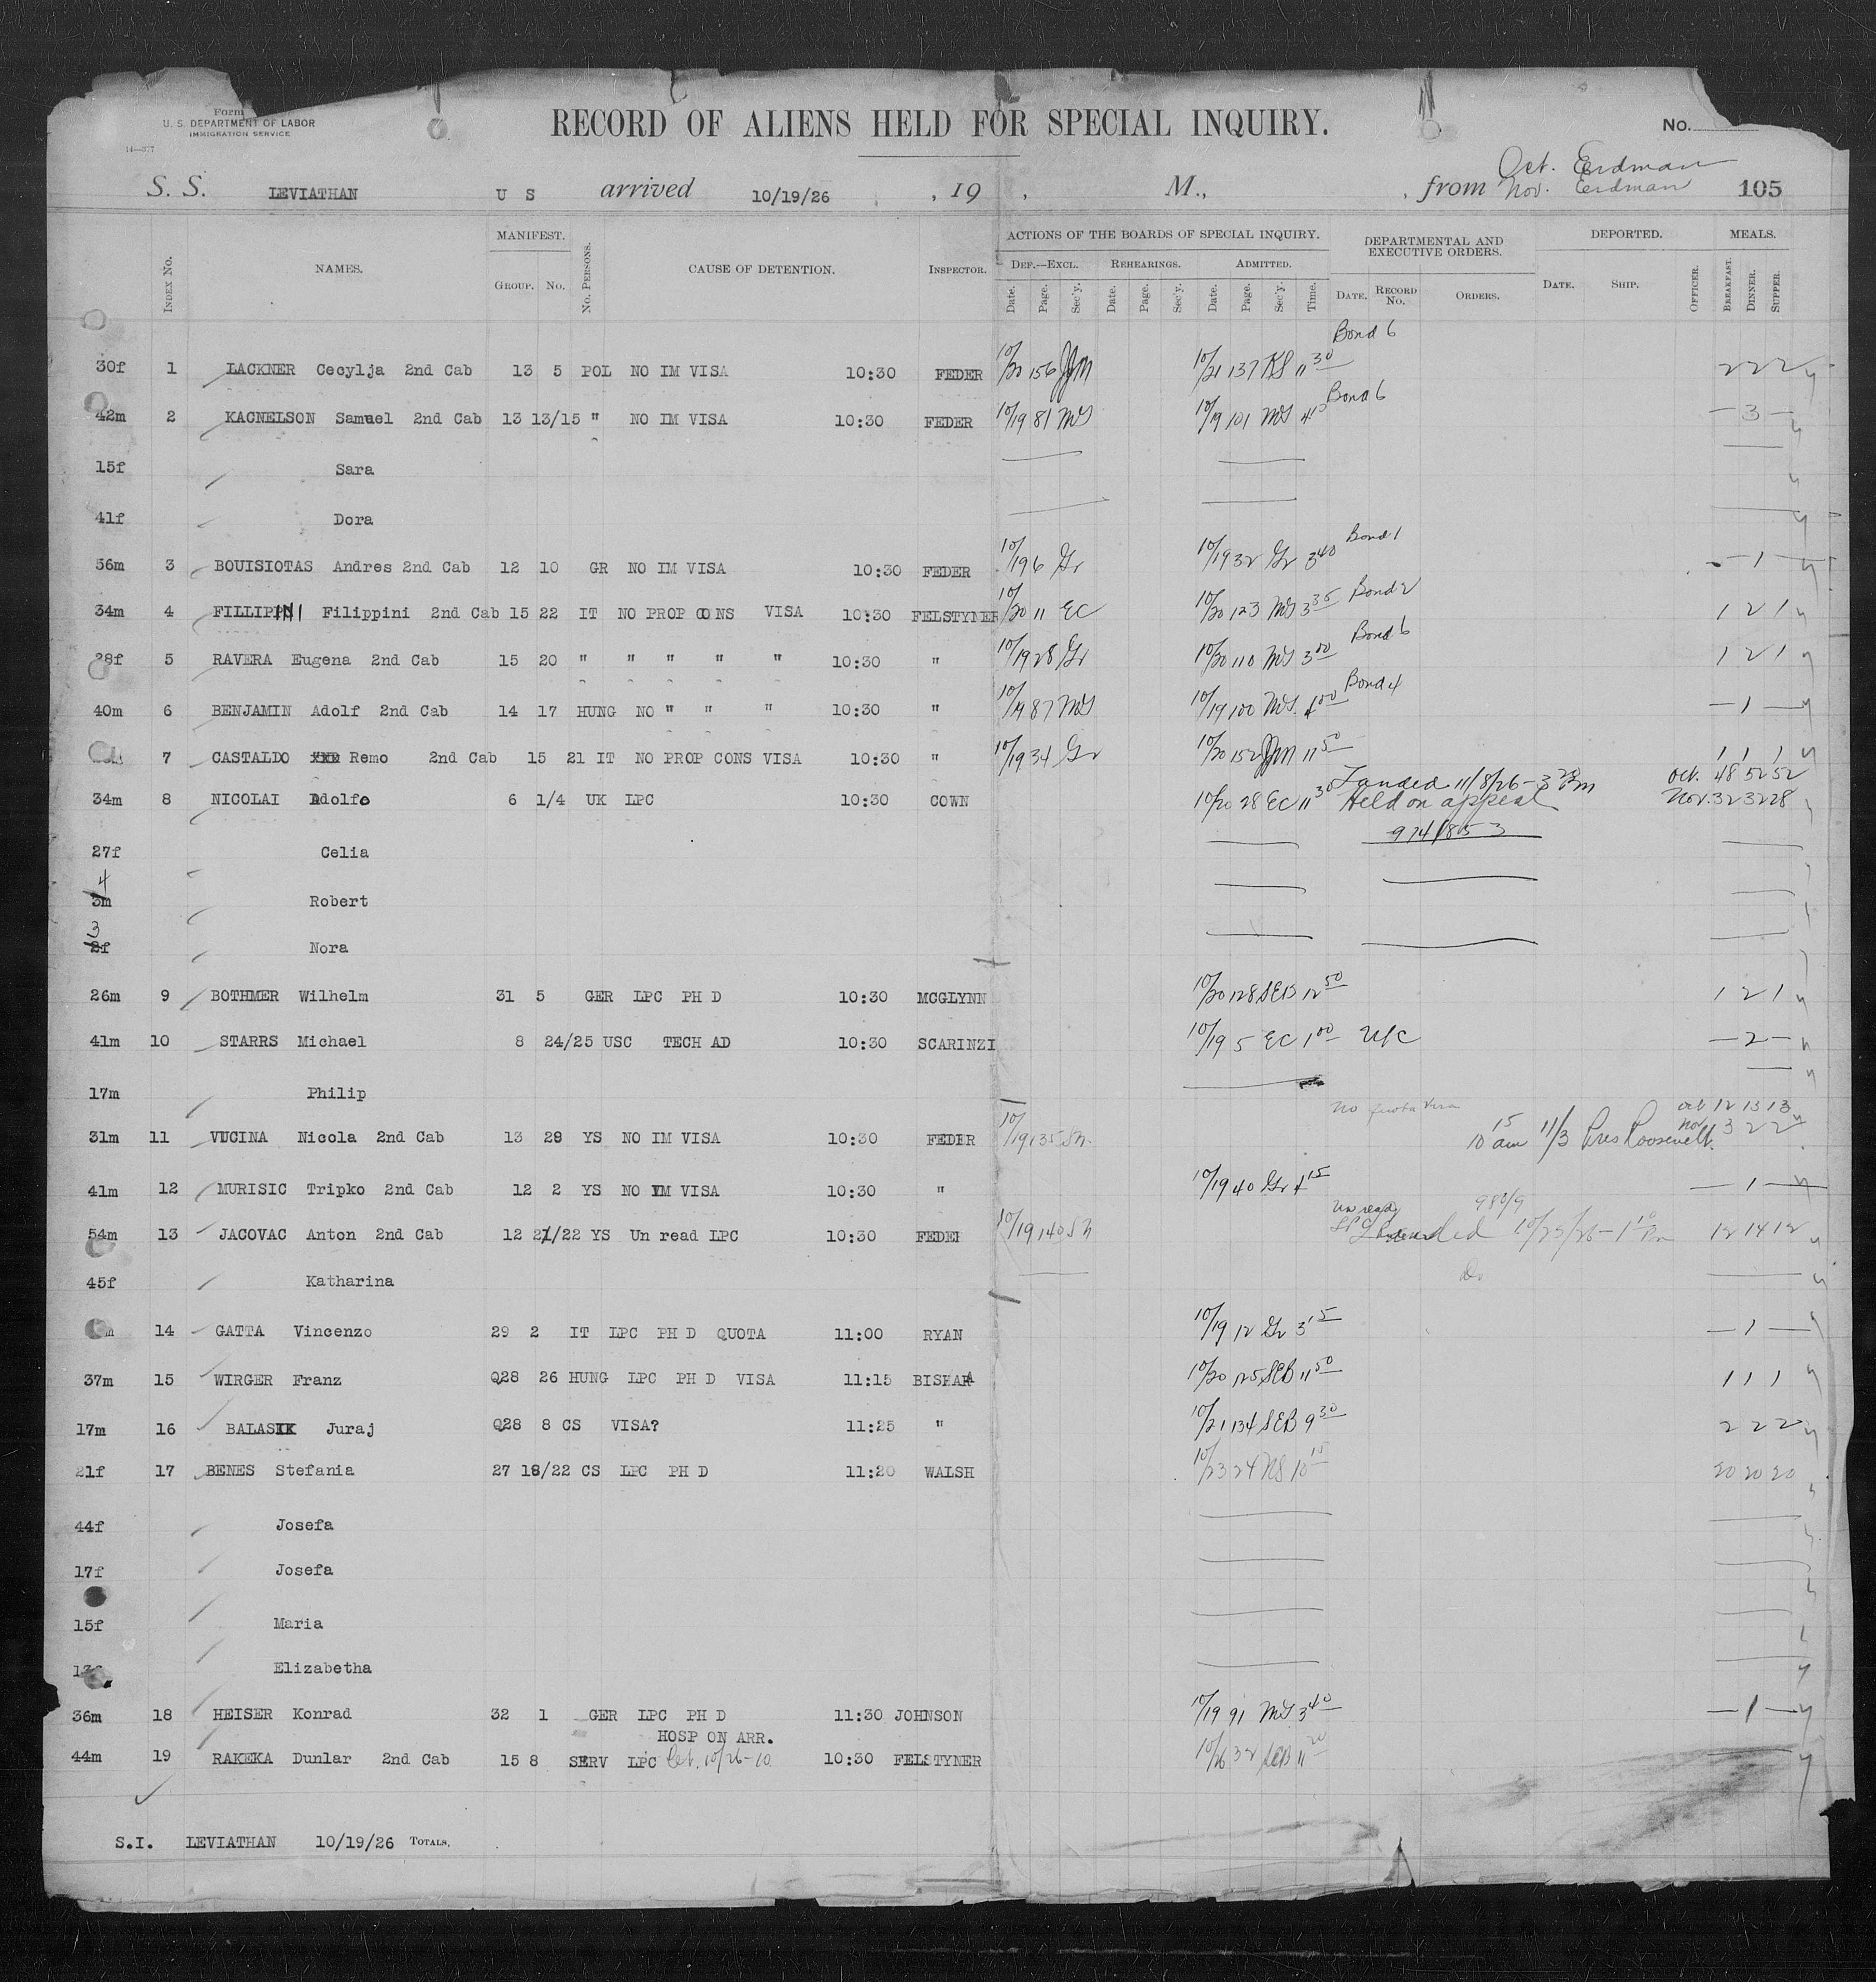 Form
U. S. DEPARTMENT OF LABOR
IMMIGRATION SERVICE
14—377
RECORD OF ALIENS HELD FOR SPECIAL INQUIRY.
No.
Oct. Erdman
S. S. LEVIATHAN U S arrived 10/19/26 , 19 , M., , from Nov. Erdman 105
MANIFEST. ACTIONS OF THE BOARDS OF SPECIAL INQUIRY. DEPARTMENTAL AND EXECUTIVE ORDERS. DEPORTED. MEALS.
INDEX No. NAMES. GROUP. No. No. PERSONS. CAUSE OF DETENTION. INSPECTOR. DEF.—EXCL. REHEARINGS. ADMITTED.
Date. Page. Sec'y. Date. Page. Sec'y. Date. Page. Sec'y. Time. DATE. RECORD No. ORDERS. DATE. SHIP. OFFICER. BREAKFAST. DINNER. SUPPER.
Bond 6
30f 1 LACKNER Cecylja 2nd Cab 13 5 POL NO IM VISA 10:30 FEDER 10/20 156 JJM 10/21 137 KS 11 30 2 2 2
Bond 6
42m 2 KACNELSON Samuel 2nd Cab 13 13/15 " NO IM VISA 10:30 FEDER 10/19 81 MS 10/19 101 MS 4 10 — 3 —
15f Sara
41f Dora
Bond 1
56m 3 BOUISIOTAS Andres 2nd Cab 12 10 GR NO IM VISA 10:30 FEDER 10/19 6 Gr 10/19 32 Gr 3 40 — 1 —
Bond 2
34m 4 FILLIPINI Filippini 2nd Cab 15 22 IT NO PROP CONS VISA 10:30 FELSTYNER 10/20 11 EC 10/20 123 MS 3 35 1 2 1
Bond 6
28f 5 RAVERA Eugena 2nd Cab 15 20 " " " " " 10:30 " 10/19 28 Gr 10/20 110 MS 3 00 1 2 1
Bond 4
40m 6 BENJAMIN Adolf 2nd Cab 14 17 HUNG NO " " " 10:30 " 10/19 87 MS 10/19 100 MS 4 00 — 1 —
7 CASTALDO Remo 2nd Cab 15 21 IT NO PROP CONS VISA 10:30 " 10/19 34 Gr 10/20 152 JJM 11 50 1 1 1
Landed 11/8/26 - 3 Pm Oct. 48 52 52
34m 8 NICOLAI Adolfo 6 1/4 UK LPC 10:30 COWN 10/20 28 EC 11 30 Held on appeal Nov. 32 32 28
974/853
27f Celia
4
3m Robert
3
2f Nora
26m 9 BOTHMER Wilhelm 31 5 GER LPC PH D 10:30 MCGLYNN 10/20 128 SEB 12 50 1 2 1
41m 10 STARRS Michael 8 24/25 USC TECH AD 10:30 SCARINZI 10/19 5 EC 1 00 U/C — 2 —
17m Philip
No quota visa Oct 12 13 13
31m 11 VUCINA Nicola 2nd Cab 13 29 YS NO IM VISA 10:30 FEDER 10/19 135 Sn. 10 15 am 11/3 Pres Roosevelt. Nov 3 2 2
41m 12 MURISIC Tripko 2nd Cab 12 2 YS NO IM VISA 10:30 " 10/19 40 Gr 4 15 — 1 —
Un read 980/9
54m 13 JACOVAC Anton 2nd Cab 12 21/22 YS Un read LPC 10:30 FEDER 10/19 140 Sn LPC Landed 10/23/26 - 1 10 Pm 12 14 12
45f Katharina Do
14 GATTA Vincenzo 29 2 IT LPC PH D QUOTA 11:00 RYAN 10/19 12 Gr 3 15 — 1 —
37m 15 WIRGER Franz Q28 26 HUNG LPC PH D VISA 11:15 BISHARA 10/20 125 SEB 11 50 1 1 1
17m 16 BALASIK Juraj Q28 8 CS VISA? 11:25 " 10/21 134 SEB 9 30 2 2 2
21f 17 BENES Stefania 27 18/22 CS LPC PH D 11:20 WALSH 10/23 24 NS 10 15 20 20 20
44f Josefa
17f Josefa
15f Maria
13f Elizabetha
36m 18 HEISER Konrad 32 1 GER LPC PH D 11:30 JOHNSON 10/19 91 MS 3 40 — 1 —
HOSP ON ARR.
44m 19 RAKEKA Dunlar 2nd Cab 15 8 SERV LPC 10/26-10 10:30 FELSTYNER 10/26 32 SEB 11 20
S.I. LEVIATHAN 10/19/26 TOTALS.